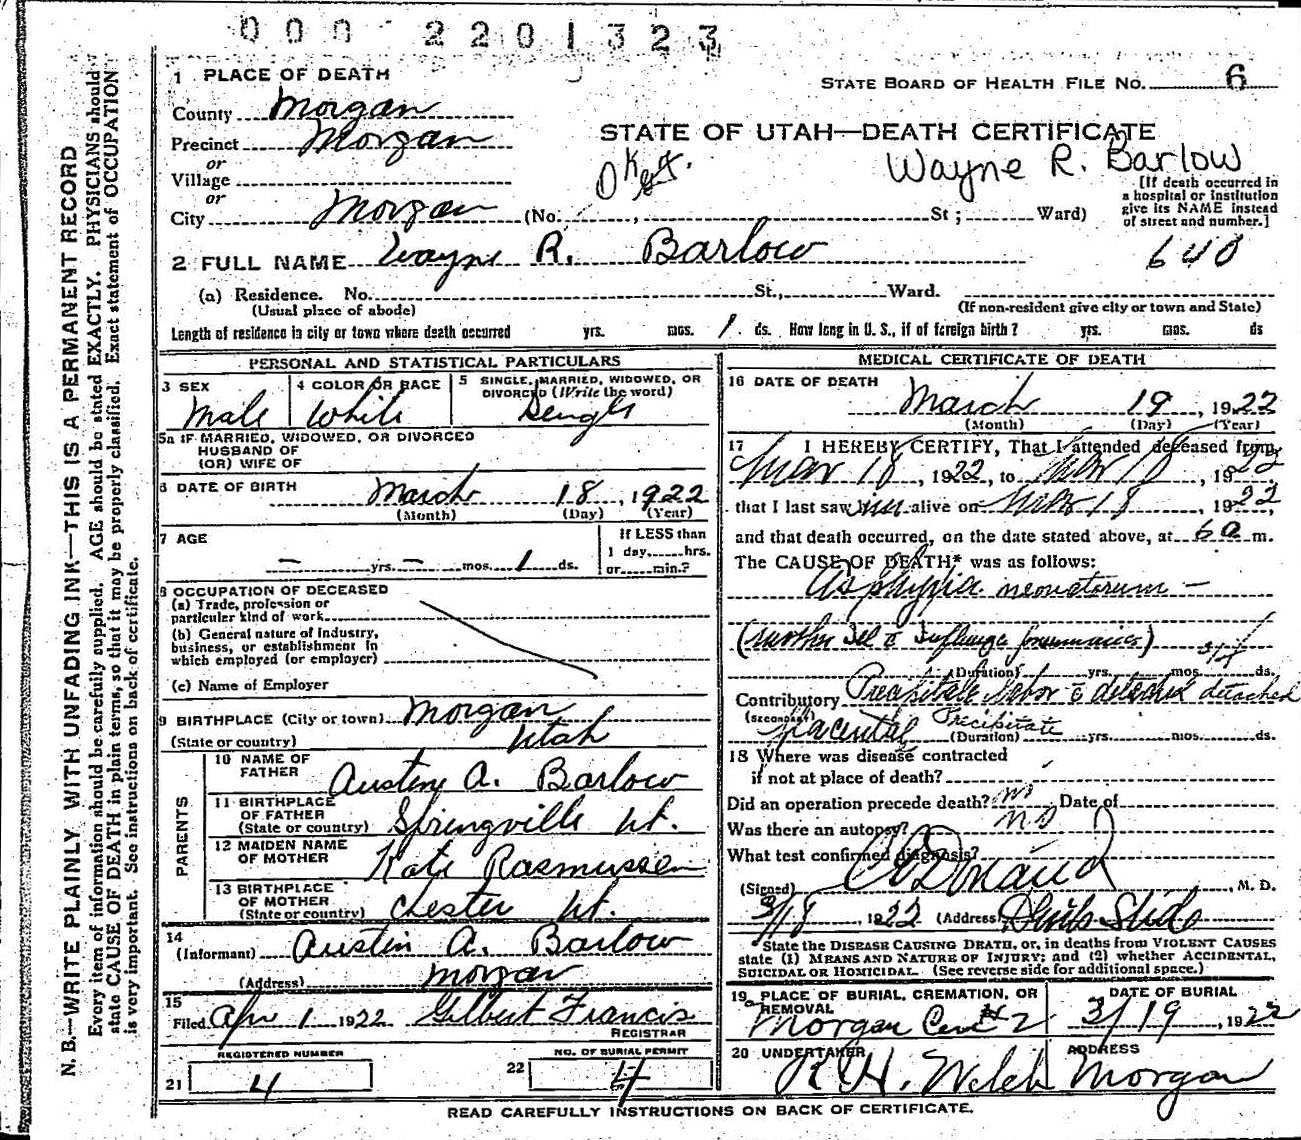 000 2201323
1 PLACE OF DEATH
STATE BOARD OF HEALTH FILE NO. 6
County Morgan
Precinct Morgan
STATE OF UTAH—DEATH CERTIFICATE
or
Village
Wayne R. Barlow
or
[If death occurred in a hospital or institution give its NAME instead of street and number.]
City Morgan (No. , St; Ward)
2 FULL NAME Wayne R. Barlow
640
(a) Residence. No. St., Ward.
(Usual place of abode) (If non-resident give city or town and State)
Length of residence in city or town where death occurred yrs. mos. 1 ds. How long in U. S., if of foreign birth? yrs. mos. ds
PERSONAL AND STATISTICAL PARTICULARS
3 SEX 4 COLOR OR RACE 5 SINGLE, MARRIED, WIDOWED, OR DIVORCED (Write the word)
Male White Single
5a IF MARRIED, WIDOWED, OR DIVORCED
HUSBAND OF
(OR) WIFE OF
6 DATE OF BIRTH March 18, 1922
(Month) (Day) (Year)
7 AGE — yrs. — mos. 1 ds.
If LESS than
1 day, hrs.
or min.?
8 OCCUPATION OF DECEASED
(a) Trade, profession or
particular kind of work
(b) General nature of industry,
business, or establishment in
which employed (or employer)
(c) Name of Employer
9 BIRTHPLACE (City or town) Morgan
(State or country) Utah
PARENTS
10 NAME OF FATHER Austin A. Barlow
11 BIRTHPLACE OF FATHER (State or country) Springville Ut.
12 MAIDEN NAME OF MOTHER Kate Rasmussen
13 BIRTHPLACE OF MOTHER (State or country) Chester Ut.
14
(Informant) Austin A. Barlow
(Address) Morgan
15
Filed Apr 1 1922 Gilbert Francis
REGISTRAR
REGISTERED NUMBER NO. OF BURIAL PERMIT
21 4 22 4
MEDICAL CERTIFICATE OF DEATH
16 DATE OF DEATH
March 19, 1922
(Month) (Day) (Year)
17 I HEREBY CERTIFY, That I attended deceased from
Mar 18, 1922, to Mar 18, 1922
that I last saw him alive on Mar 18, 1922,
and that death occurred, on the date stated above, at 6 a m.
The CAUSE OF DEATH* was as follows:
Asphyxia neonatorum —
(mother ill c Influenza pneumonia)
(Duration) yrs. mos. ds.
Contributory Precipitate labor c detached detached
(SECONDARY) placenta Precipitate
(Duration) yrs. mos. ds.
18 Where was disease contracted
if not at place of death?
Did an operation precede death? no Date of
Was there an autopsy? no
What test confirmed diagnosis?
(Signed) , M. D.
3/18, 1922 (Address) Devils Slide
*State the DISEASE CAUSING DEATH, or, in deaths from VIOLENT CAUSES
state (1) MEANS AND NATURE OF INJURY; and (2) whether ACCIDENTAL,
SUICIDAL OR HOMICIDAL. (See reverse side for additional space.)
19 PLACE OF BURIAL, CREMATION, OR REMOVAL DATE OF BURIAL
Morgan Cem # 2 3/19, 1922
20 UNDERTAKER ADDRESS
R H. Welch Morgan
READ CAREFULLY INSTRUCTIONS ON BACK OF CERTIFICATE.
N. B.—WRITE PLAINLY WITH UNFADING INK—THIS IS A PERMANENT RECORD
Every item of information should be carefully supplied. AGE should be stated EXACTLY. PHYSICIANS should
state CAUSE OF DEATH in plain terms, so that it may be properly classified. Exact statement of OCCUPATION
is very important. See instructions on back of certificate.